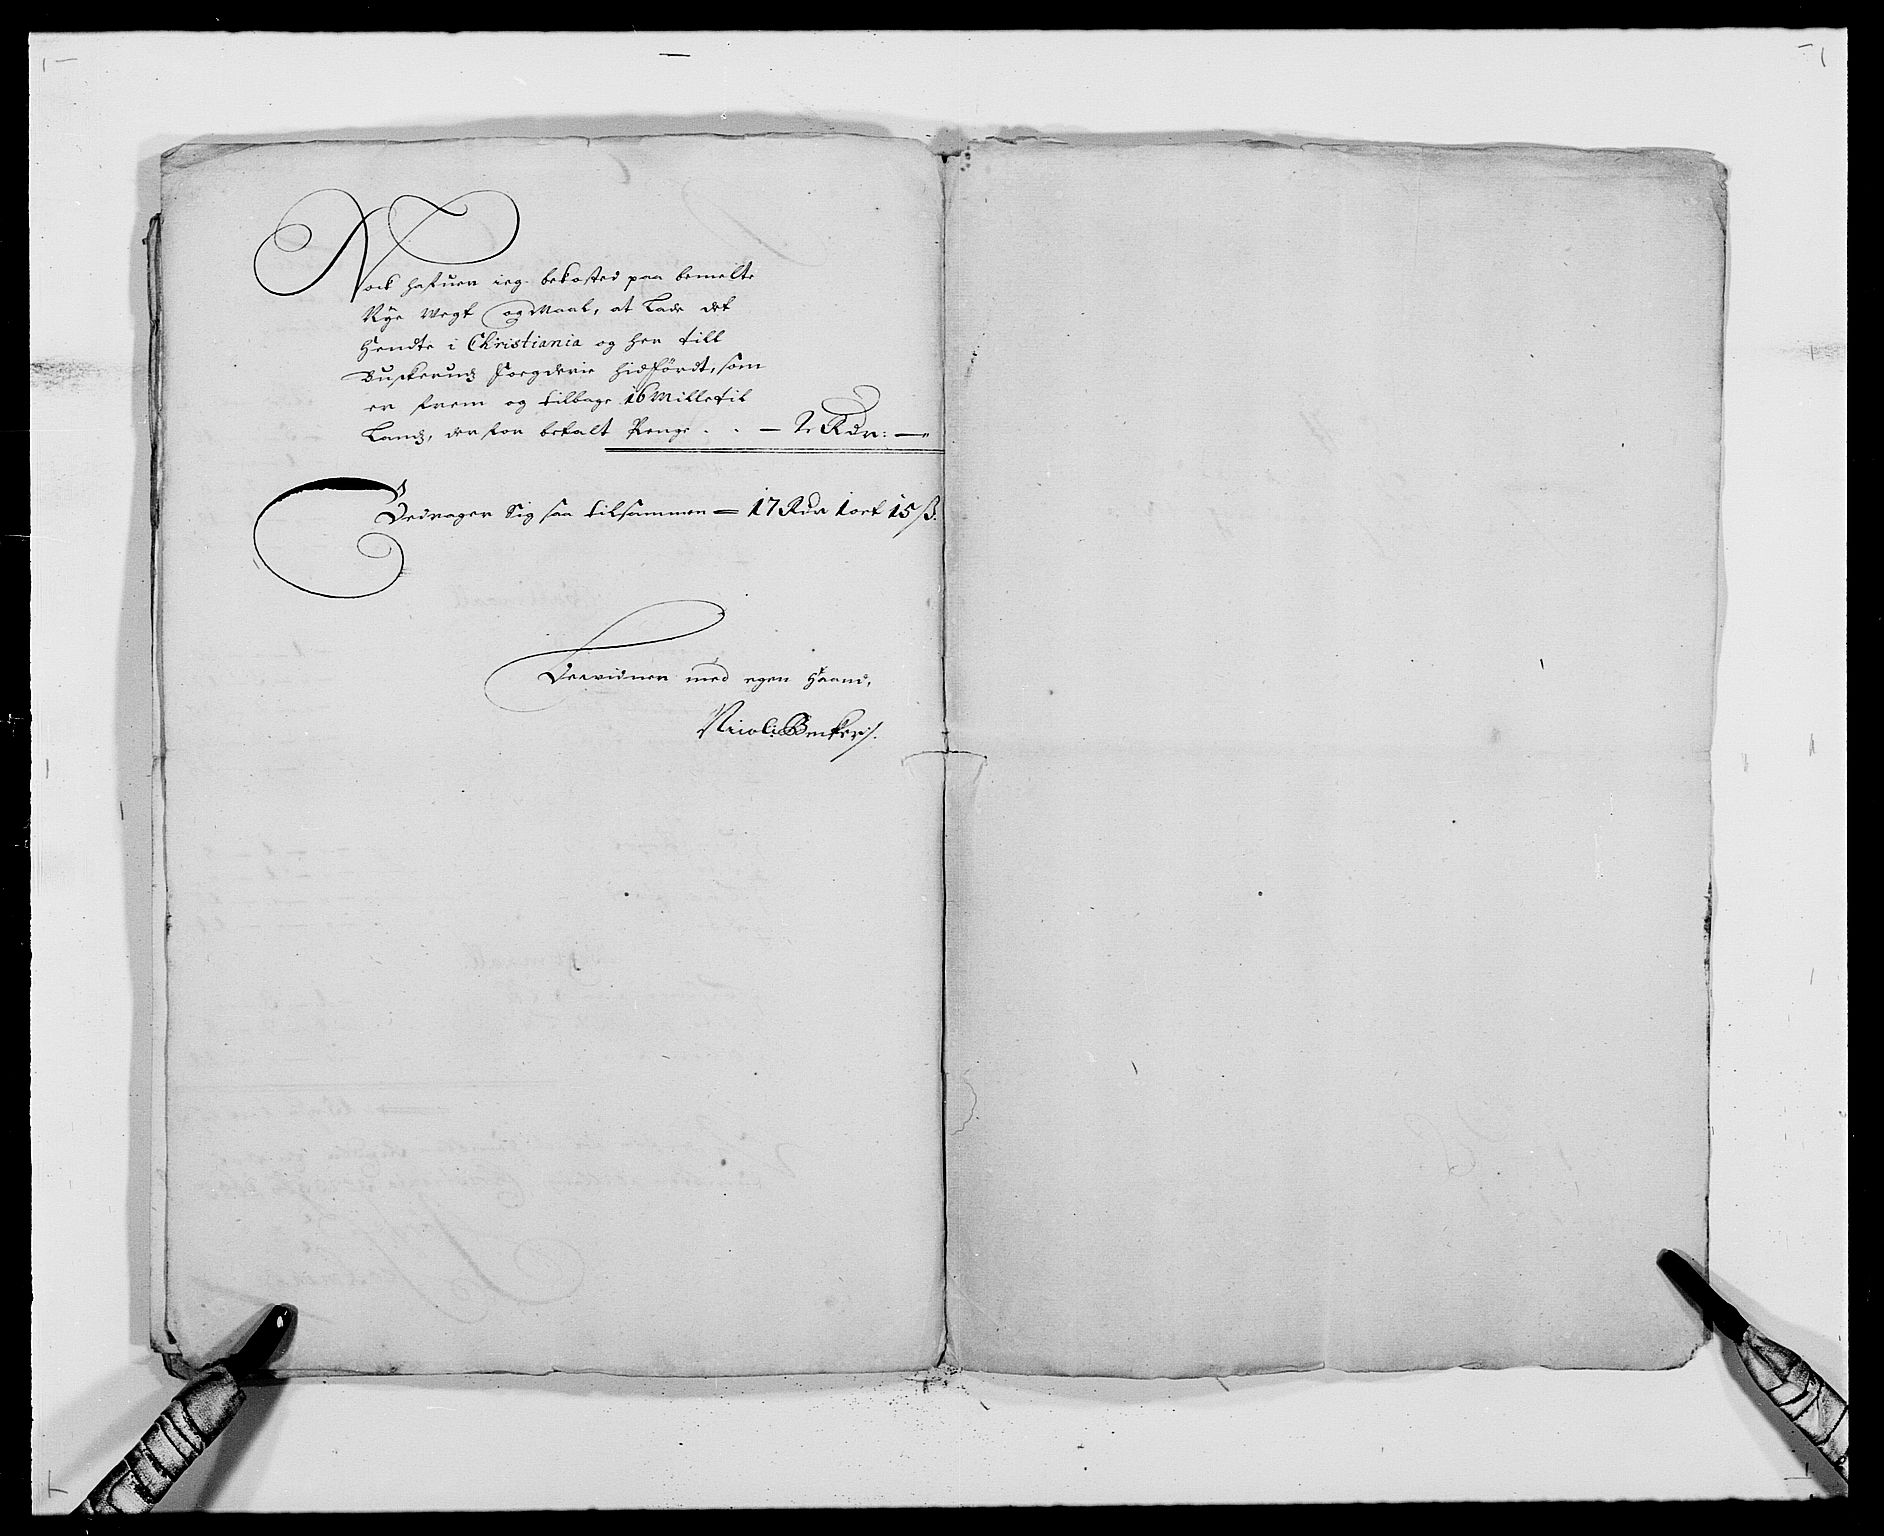 Nock hafuer ieg bekosted paa bemelte
Nye Wegt og Maal, at Lade det
Hendte i Christiania og her till
Buskeruds Foegderie hidfördt, som
er frem og tilbage 16 Mille til
Lands, der for betalt Penge - - 2 Rdr: -
Bedrager Sig saa tilsammen = 17 Rdr 1 ort 15 ß.
med egen Haand,
Nicoli Becker